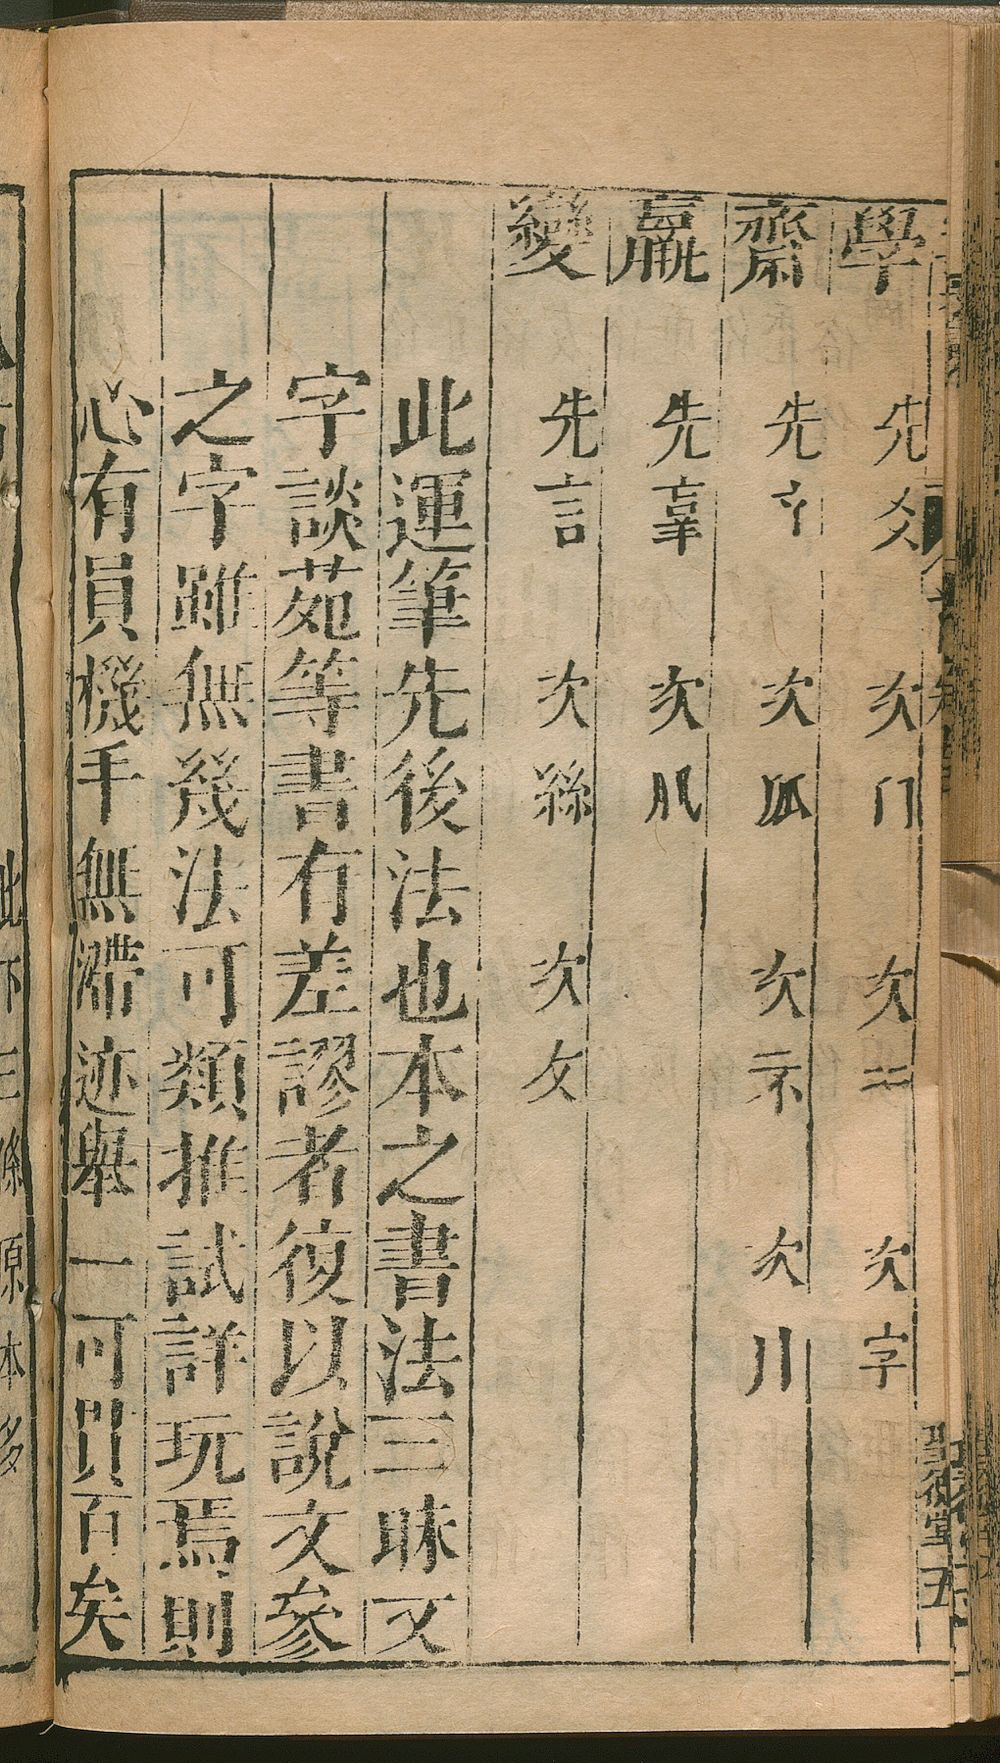 學 先 㸚 次 冂 次 二 次 字
齋 先 亠 次 次 示 次 川
羸 先 次
變 先 言 次 絲 次 攵
此運筆先後法也本之書法三昧文
字談苑等書有差謬者復以說文參
之字雖無幾法可類推試詳玩焉則
心有員機手無滯迹舉一可貫百矣
聖徳堂
五
此下三條原本多